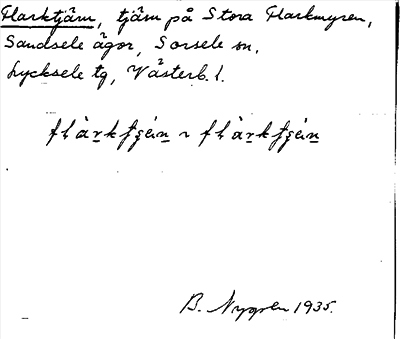 Flarktjärn, tjärn på Stora Flarkmyren,
Sandsele ägor, Sorsele sn,
Lycksele tg, Västerb. l.
B. Nygren 1935.